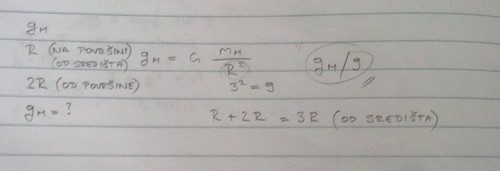 gM
R (NA POVRŠINI) (OD SREDIŠTA) gM = G mM / R²
2R (OD POVRŠINE) 3² = 9 gM/9
gM = ?
R + 2R = 3R (OD SREDIŠTA)